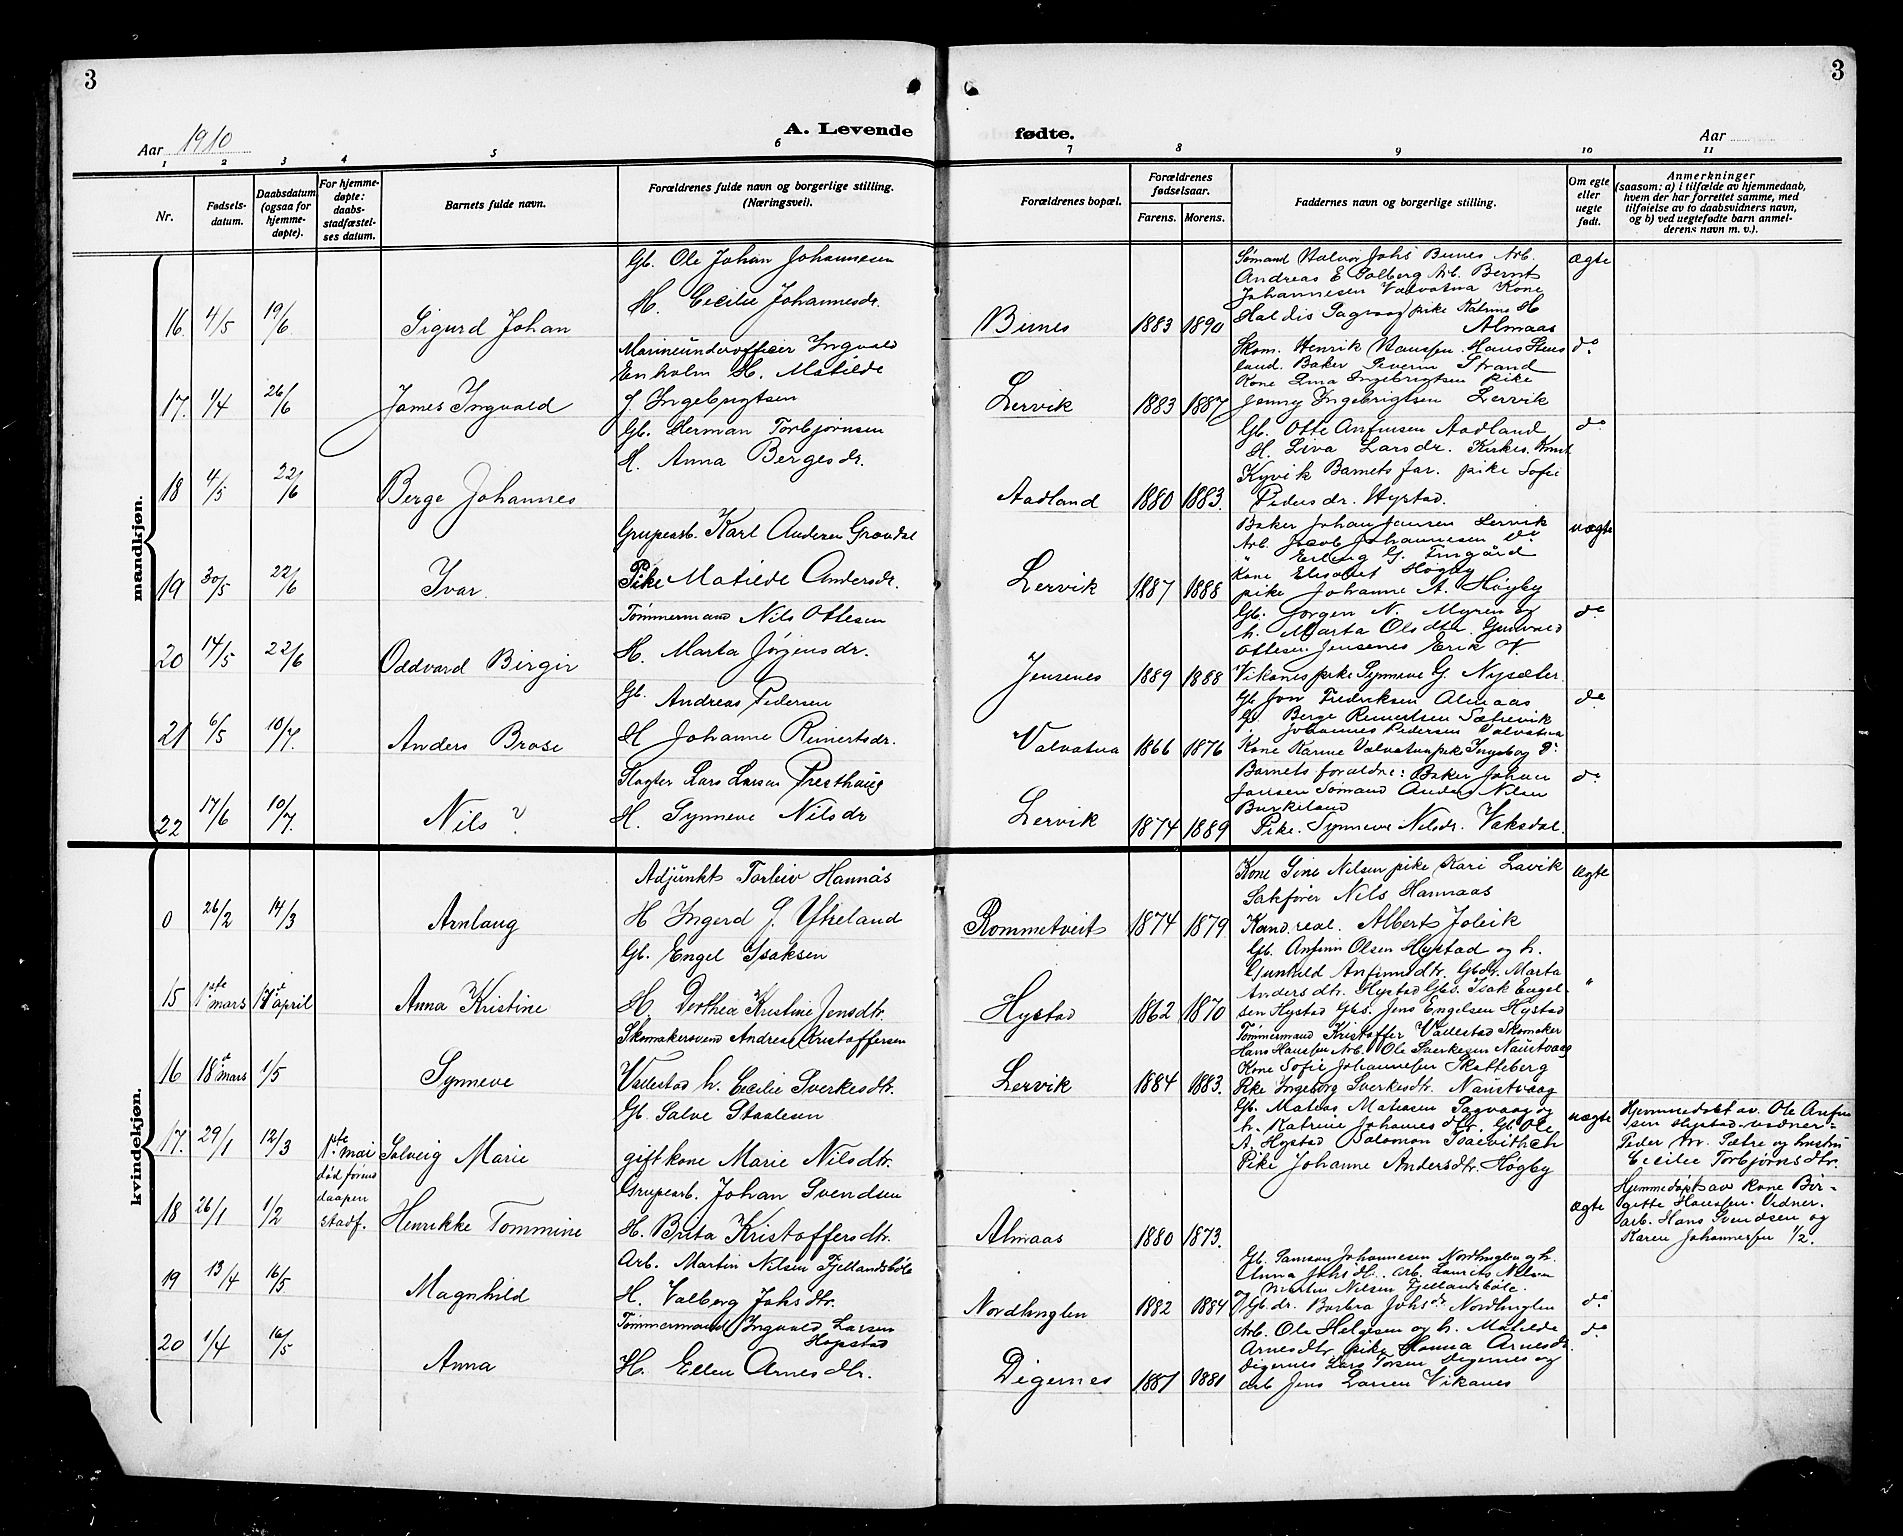 3
3
Aar 1910
A. Levende
fødte.
Aar
1 2 3 4 5 6 7 8 9 10 11
Nr.
Fødsels-
datum.
Daabsdatum
(ogsaa for
hjemme-
døpte).
For hjemme-
døpte:
daabs-
stadfæstel-
ses datum.
Barnets fulde navn.
Forældrenes fulde navn og borgerlige stilling.
(Næringsvei).
Forældrenes bopæl.
Forældrenes
fødselsaar.
Farens. Morens.
Faddernes navn og borgerlige stilling.
Om egte
eller
uegte
født.
Anmerkninger
(saasom: a) i tilfælde av hjemmedaab,
hvem der har forrettet samme, med
tilføielse av to daabsvidners navn,
og b) ved uegtefødte barn anmel-
derens navn m. v.).
mandkjøn.
16. 4/5 19/6. Sigurd Johan
Gb. Ole Johan Johannesen
H. Cecilie Johannesdr.
Bunes 1883 1890
Sømand Halvor Johs Bunes Arb.
Andreas E Solberg Arb. Bernt
Johannesen Valvatna Kone
Haldis Sagvaag pike Katrine H
Almaas
ægte
17. 1/4 26/6 James Ingvald
Marineunderofficer Ingvald
Enholm H. Matilde
J. Ingebrigtsen
Lervik 1883 1887
Skom. Henrik Hanssen. Hans Stens
land. Baker Severin Strand
Kone Lina Ingebrigtsen pike
Jenny Ingebrigtsen Lervik
do
18 4/5 22/6 Berge Johannes
Gb. Herman Torbjørnsen
H. Anna Bergesdr.
Aadland 1880 1883.
Gb. Otte Anfinsen Aadland
H. Liva Larsdr. Kirkes. Knut
Kyvik Barnets far. pike Sofie
Pedersdr. Hystad.
do
19 30/5 22/6 Ivar.
Grupearb. Karl Andersen Grøndal
Pike Matilde Andersdr.
Lervik 1887 1888
Baker Johan Jansen Lervik
Arb. Jacob Johannesen do
" Erling G. Tingård
Kone Elisabet Høgby
pike Johanne A. Høgby
uægte
20 14/5 22/6 Oddvard Birgir
Tømmermand Nils Ottesen
H. Marta Jørgensdr.
Jensenes 1889 1888
Gb. Jørgen N. Myren og
h. Marta Olsdtr. Gunvald
Ottesen Jensenes Erik N
Vikanes pike Synneve G. Nysæter.
do
21 6/5 10/7. Anders Brose
Gb. Andreas Pedersen
H Johanne Reinertsdr.
Valvatna 1866 1876
Gb Jon Fredriksen Almaas
Gb Berge Reinertsen Sætrevik
" Johannes Pedersen Valvatna
Kone Karine Valvatna pike Ingebog do
do
22 17/6 10/7. Nils ?
Slagter Lars Larsen Presthaug
H. Synneve Nilsdr
Lervik 1874 1889
Barnets forældre: Baker Johan
Jansen Sømand Anders Nilsen
Burkeland
Pike. Synneve Nilsdr. Vaksdal.
do
kvindekjøn.
0 26/2 14/3 Arnlaug
Adjunkt Torleiv Hannås
H Ingerd J. Ytreland
Rommetveit 1874 1879
Kone Sine Nilsen pike Kari Lavik
Sakfører Nils Hannaas
Kand. real. Albert Joleik
ægte
15 1ste mars 17de april Anna Kristine
Gb. Engel Isaksen
H. Dorthea Kristine Jensdtr.
Hystad 1862 1870
Gb. Anfinn Olsen Hystad og h.
Gunhild Anfinnsdtr. Gbdr. Marta
Andersdtr. Hystad Gbs. Isak Engel-
sen Hystad Gbs. Jens Engelsen Hystad
"
16 18de mars 1/5 Synneve
Skomakersvend Andreas Kristoffersen
Valestad h. Cecilie Sverkesdtr.
Lervik 1884 1883.
Tømmermand Kristoffer Valestad Skomaker
Hans Hanssen Arb. Ole Sverkesen Naustvaag
Kone Sofie Johannesen Skatteberg
Pike Ingeborg Sverkesdtr. Naustvaag
17. 29/1 12/3 1ste mai Solveig Marie
Gb. Salve Staalesen
gift kone Marie Nilsdtr.
Gb. Mateas Mateasen Sagvaag og
h. Katrine Johannesdtr. Gb. Ole
A. Hystad Salomon
Pike Johanne Andersdtr. Høgby
uægte
Hjemmedøbt av Ole Anfin
sen Hystad. vidner-
Peder M. Sætre og hustru
Cecilie Torbjørnsdtr.
18 26/1 1/2
død forend
daapen
stadf.
Henrikke Tommine
Grupearb. Johan Svendsen
H. Brita Kristoffersdtr.
Almaas 1880 1873.
ægte
Hjemmedøpt av kone Bir-
gitte Hanssen. Vidner.
arb. Hans Svendsen og
Karen Johannessen 1/2.
19 13/4 16/5 Magnhild
Arb. Martin Nilsen Fjellandsbøle
H. Valberg Johsdtr.
Nordhuglen 1882 1884
Gb. Samson Johannesen Nordhuglen og h.
Anna Johsdtr. Arb. Laurits Nilsen
og Martin Nilsen Fjellandsbøle.
Gb.dr. Barbra Johsdr Nordhuglen
do
20 1/4 16/5 Anna
Tømmermand Ingvald Larsen
Hopstad
H. Ellen Arnesdtr.
Digernes 1887 1881
Arb. Ole Helgesen og h. Matilde
Arnesdtr pike Hanna Arnesdr.
Digernes Lars Torsen Digernes og
arb Jens Larsen Vikanes
do